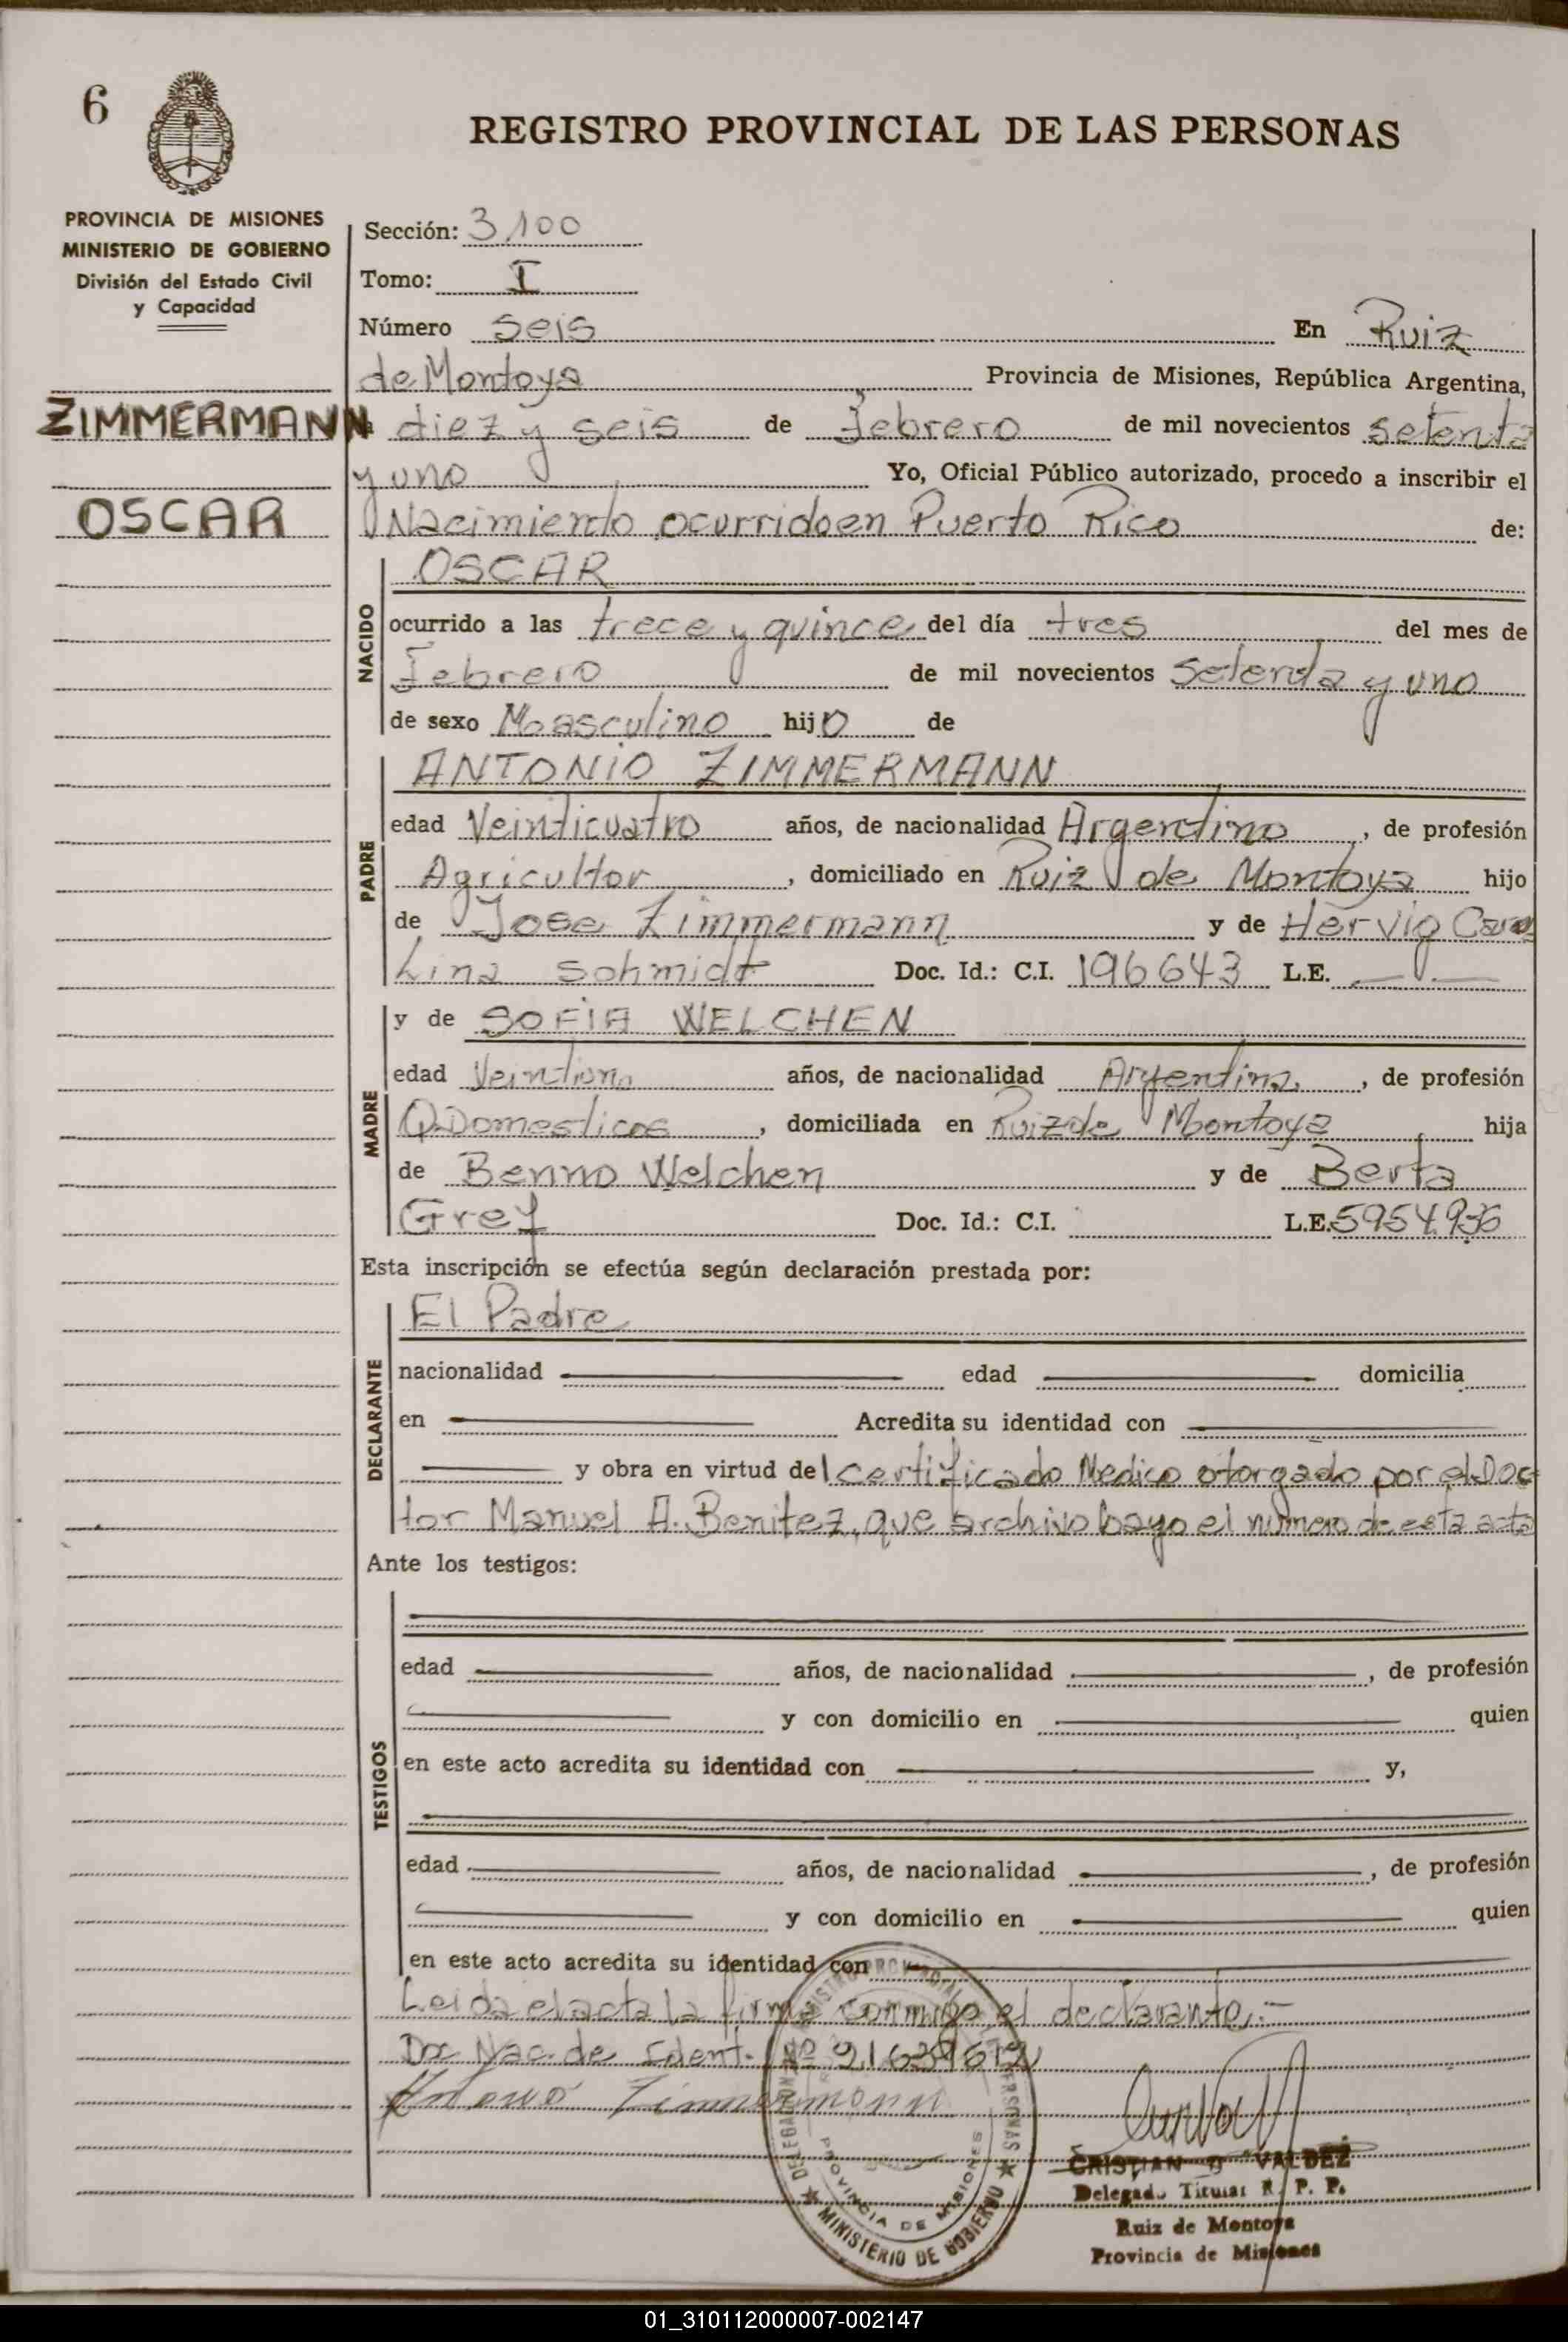 6
REGISTRO PROVINCIAL DE LAS PERSONAS
PROVINCIA DE MISIONES
MINISTERIO DE GOBIERNO
División del Estado Civil
y Capacidad
ZIMMERMANN
OSCAR
Sección: 3,100
Tomo: I
Número seis En Ruiz
de Montoya Provincia de Misiones, República Argentina,
diez y seis de Febrero de mil novecientos setenta
y uno Yo, Oficial Público autorizado, procedo a inscribir el
Nacimiento ocurrido en Puerto Rico de:
NACIDO
OSCAR
ocurrido a las trece y quince del día tres del mes de
Febrero de mil novecientos setenta y uno
de sexo Masculino hijo de
PADRE
ANTONIO ZIMMERMANN
edad Veinticuatro años, de nacionalidad Argentino, de profesión
Agricultor, domiciliado en Ruiz de Montoya hijo
de Jose Zimmermann y de Hervig Caro
Lina Schmidt Doc. Id.: C.I. 196643 L.E.
MADRE
y de SOFIA WELCHEN
edad Veintiuno años, de nacionalidad Argentina, de profesión
Q.Domesticos, domiciliada en Ruiz de Montoya hija
de Benno Welchen y de Berta
Grey Doc. Id.: C.I. L.E. 5954.936
Esta inscripción se efectúa según declaración prestada por:
DECLARANTE
El Padre
nacionalidad edad domicilia
en Acredita su identidad con
y obra en virtud del certificado Medico otorgado por el Doc
tor Manuel A. Benitez, que archivo bayo el numero de esta acta
Ante los testigos:
TESTIGOS
edad años, de nacionalidad , de profesión
y con domicilio en quien
en este acto acredita su identidad con y,
edad años, de nacionalidad , de profesión
y con domicilio en quien
en este acto acredita su identidad con
Leida el acta la firma conmigo el declarante.-
Doc Nac. de Ident. Nº 21639612
Antonio Zimmermann
PROVINCIA DE MISIONES
MINISTERIO DE GOBIERNO
CRISTIAN VALDEZ
Delegado Titular R. P. P.
Ruiz de Montoya
Provincia de Misiones
01_310112000007-002147